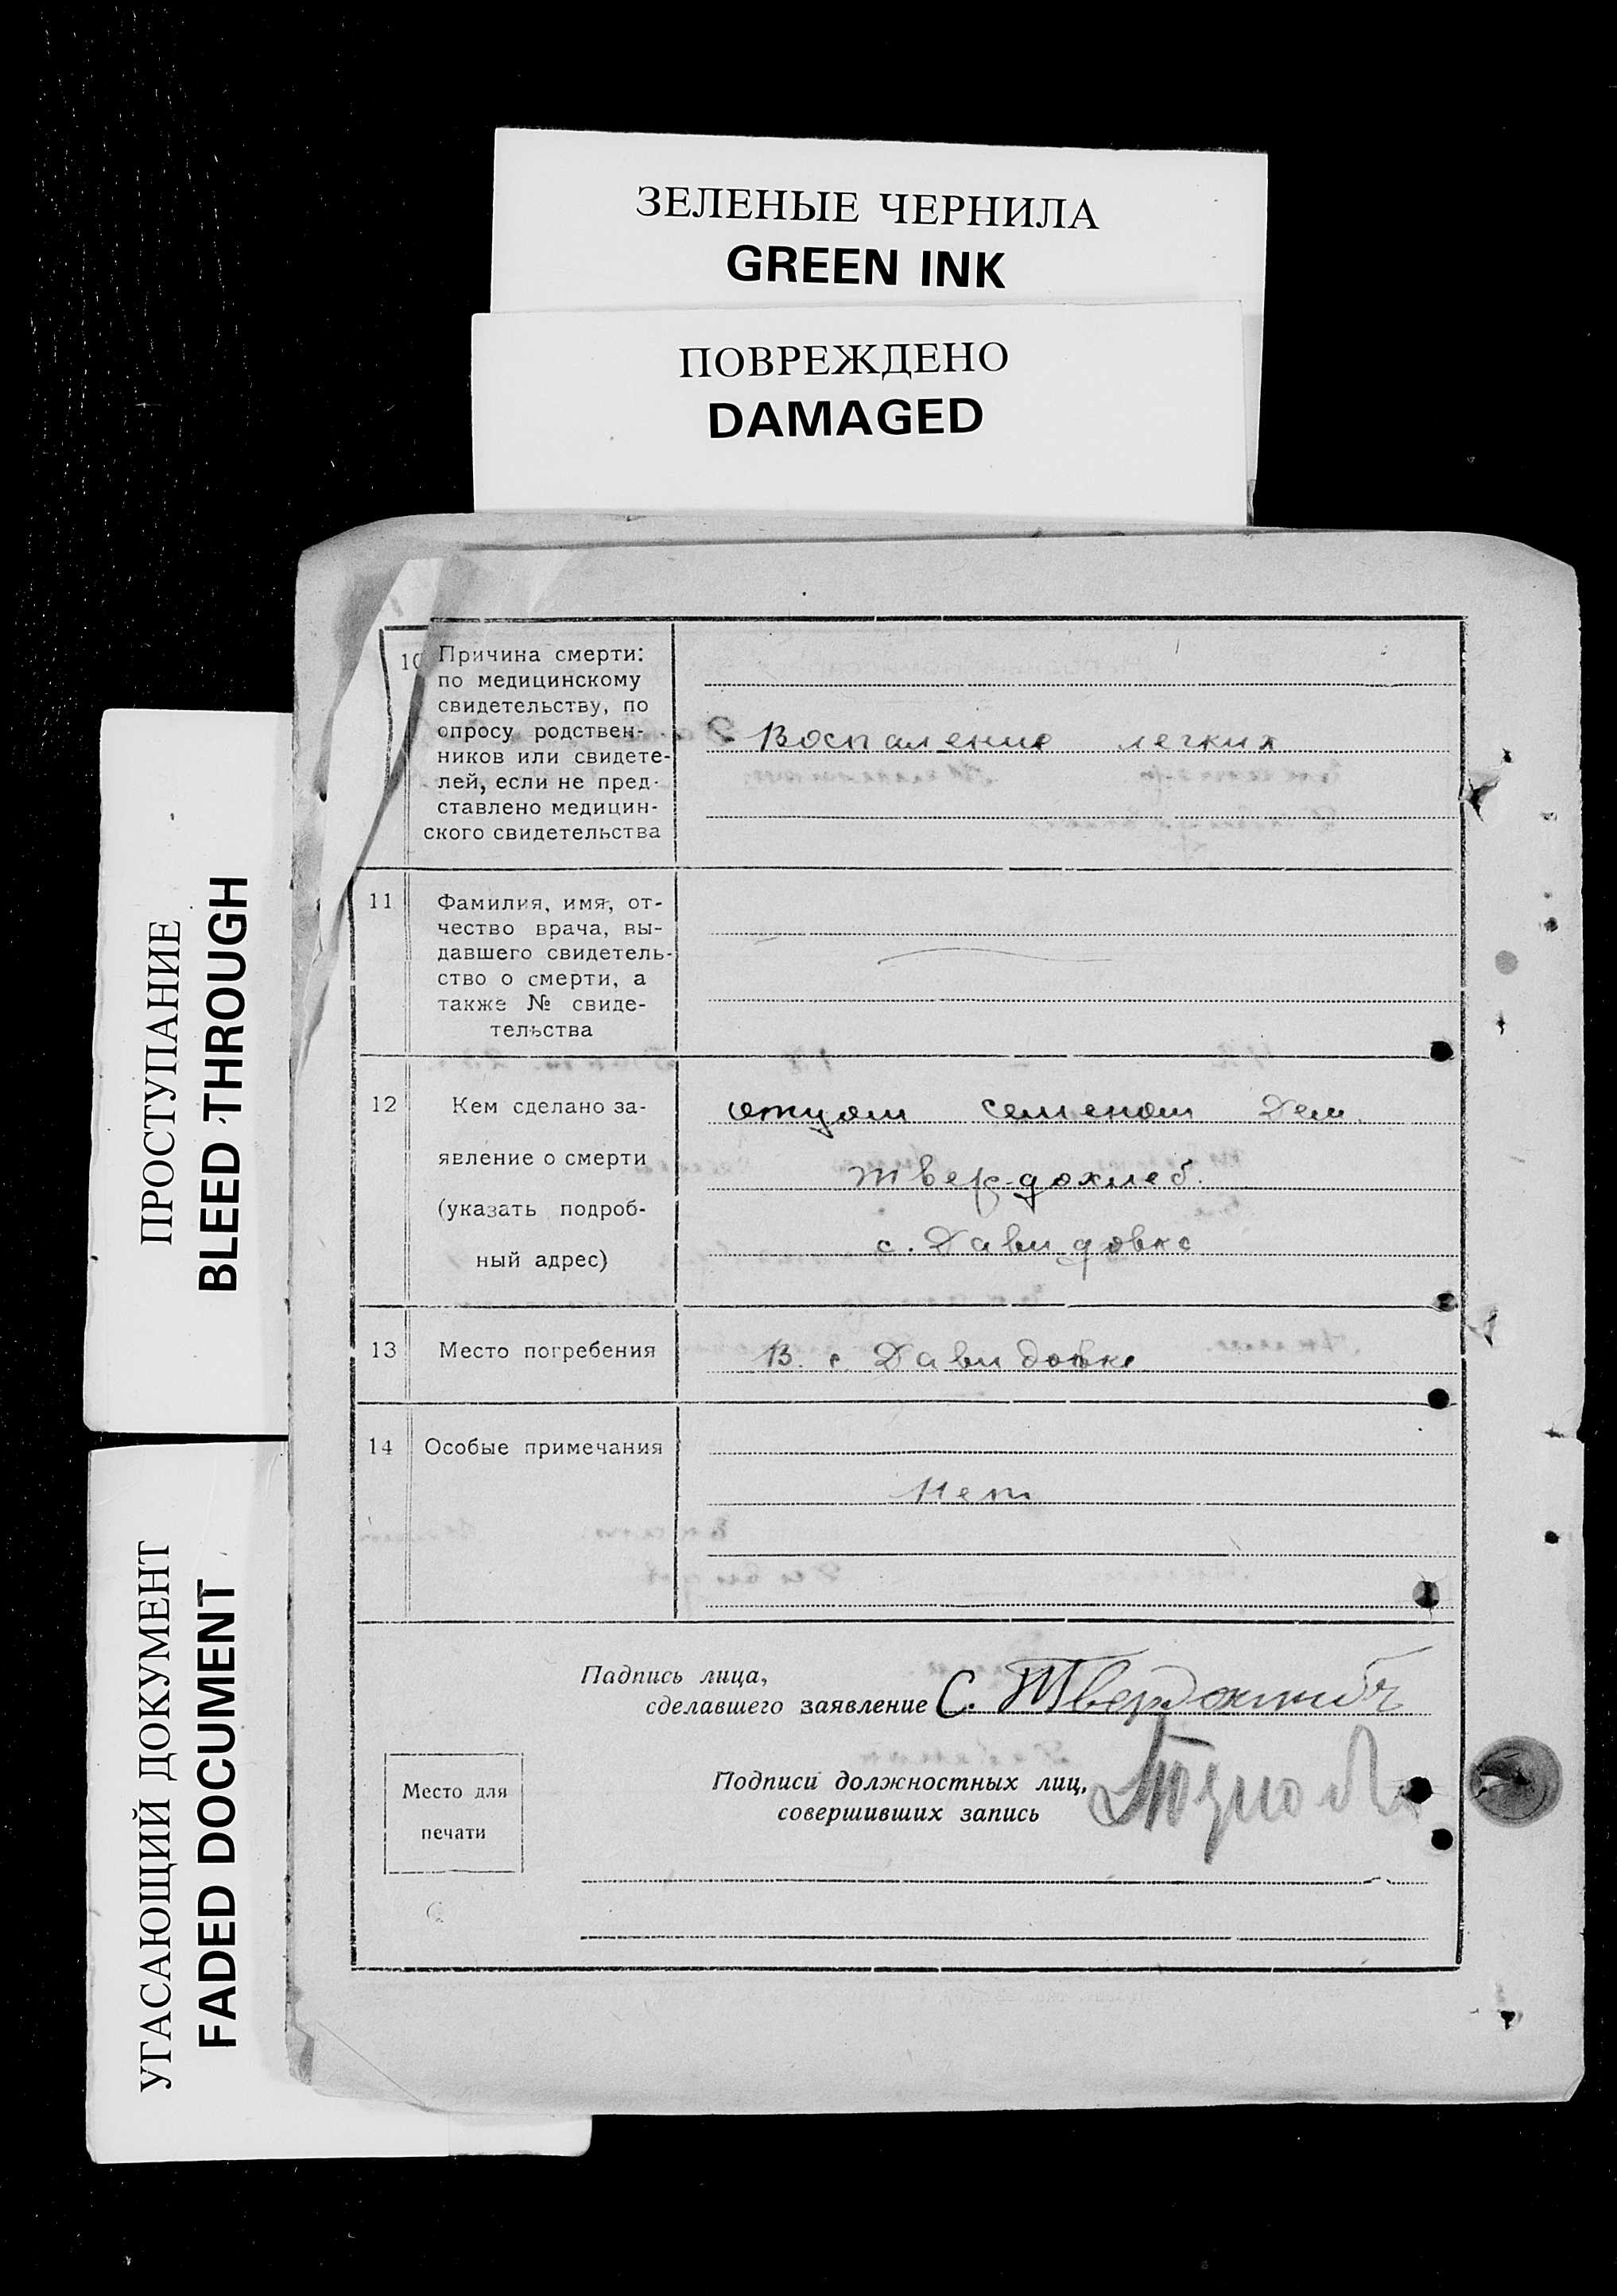 ЗЕЛЕНЫЕ ЧЕРНИЛА
GREEN INK
ПОВРЕЖДЕНО
DAMAGED
ПРОСТУПАНИЕ
BLEED THROUGH
УГАСАЮЩИЙ ДОКУМЕНТ
FADED DOCUMENT
10 Причина смерти:
по медицинскому
свидетельству, по
опросу родствен-
ников или свидете-
лей, если не пред-
ставлено медицин-
ского свидетельства
Воспаление легких
11 Фамилия, имя, от-
чество врача, вы-
давшего свидетель-
ство о смерти, а
также № свиде-
тельства
12 Кем сделано за-
явление о смерти
(указать подроб-
ный адрес)
отцом Семеном Дем.
Твердохлеб.
с. Давидовке
13 Место погребения
В с. Давидовке
14 Особые примечания
Нет
Падпись лица,
сделавшего заявление С.
Место для
печати
Подписи должностных лиц,
совершивших запись